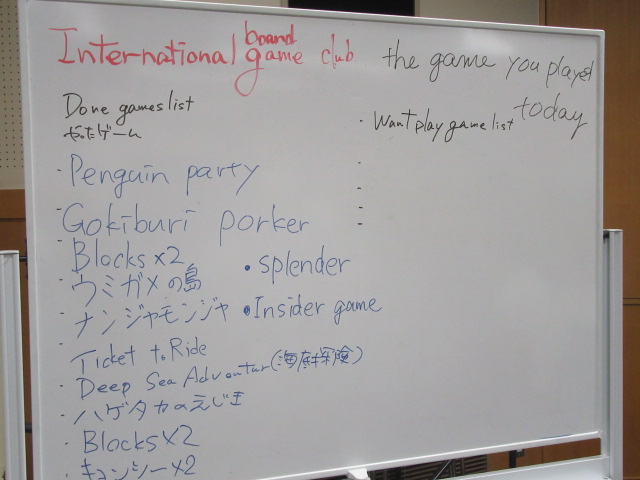 International board game club
the game you played today
Done games list
やったゲーム
Want play game list
Penguin party
Gokiburi porker
Blocks x2
ウミガメの島
ナンジャモンジャ
Ticket to Ride
Deep Sea Adventur(海底探険)
ハゲタカのえじき
Blocks x2
キョンシー x2
• splender
• Insider game